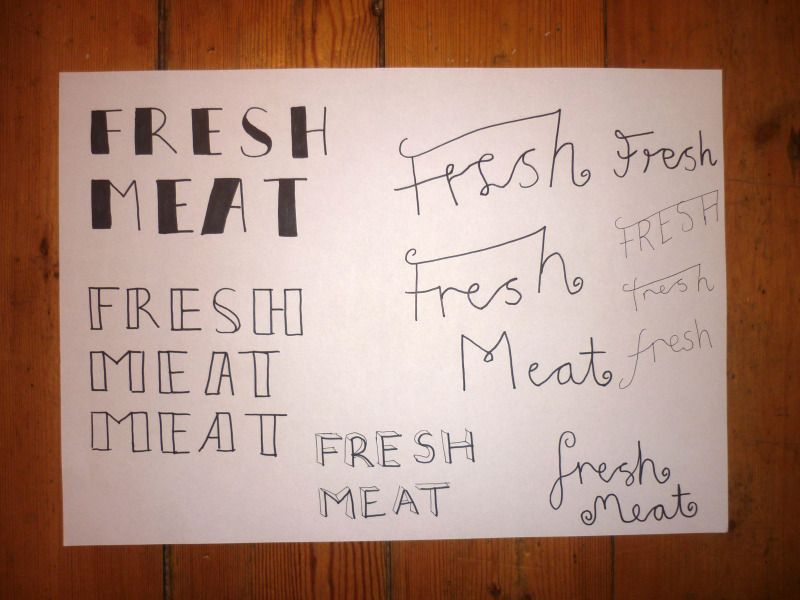 FRESH
MEAT
FRESH
MEAT
MEAT
FRESH
MEAT
Fresh
Fresh
Meat
Fresh
FRESH
fresh
fresh
fresh
Meat